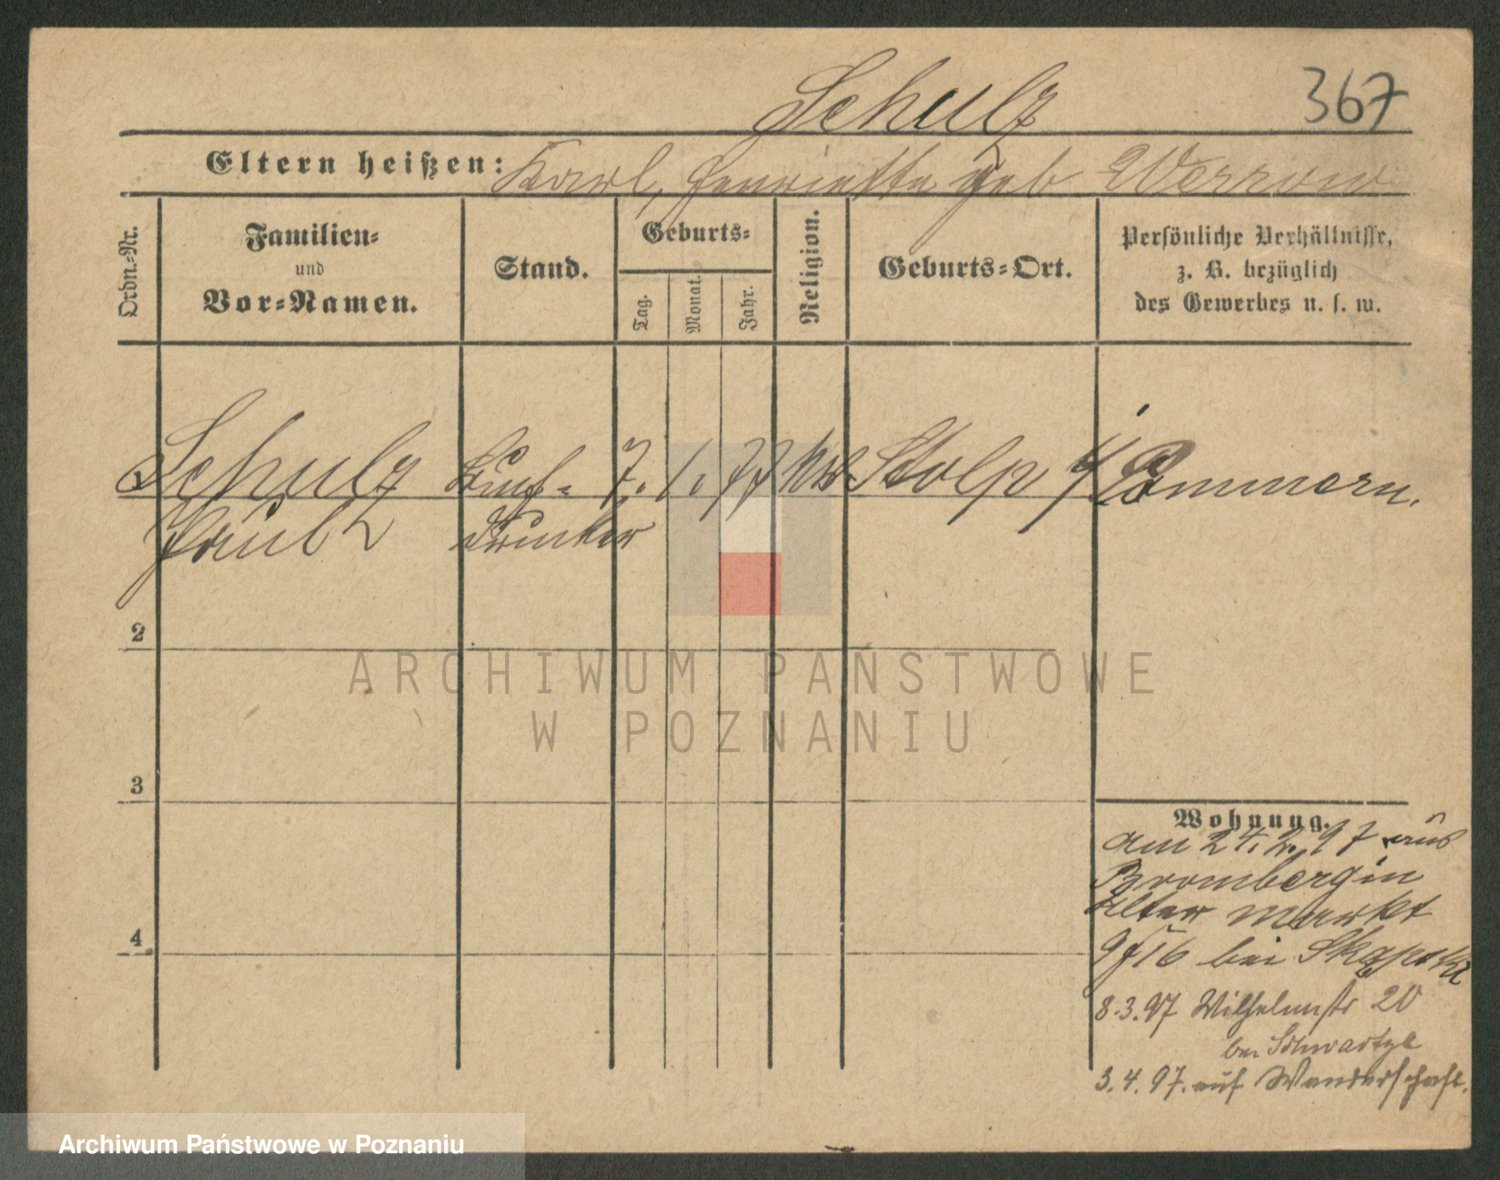 Schulz 367
Eltern heißen: Karl, Henriette geb Werrow
Ordn.-Nr.
Familien-
und
Vor-Namen.
Stand.
Geburts-
Tag.
Monat.
Jahr.
Religion.
Geburts-Ort.
Persönliche Verhältnisse,
z. B. bezüglich
des Gewerbes u. s. w.
Schulz 7. 1. 77 Stolp i/ Pommern.
Paul
2
ARCHIWUM PAŃSTWOWE
W POZNANIU
3
Wohnung.
am 24.2.97 aus
Bromberg in
Alter Markt
bei
4
8.3.97 Wilhelmstr 20
bei Schwartze
3.4.97. auf Wanderschaft.
Archiwum Państwowe w Poznaniu